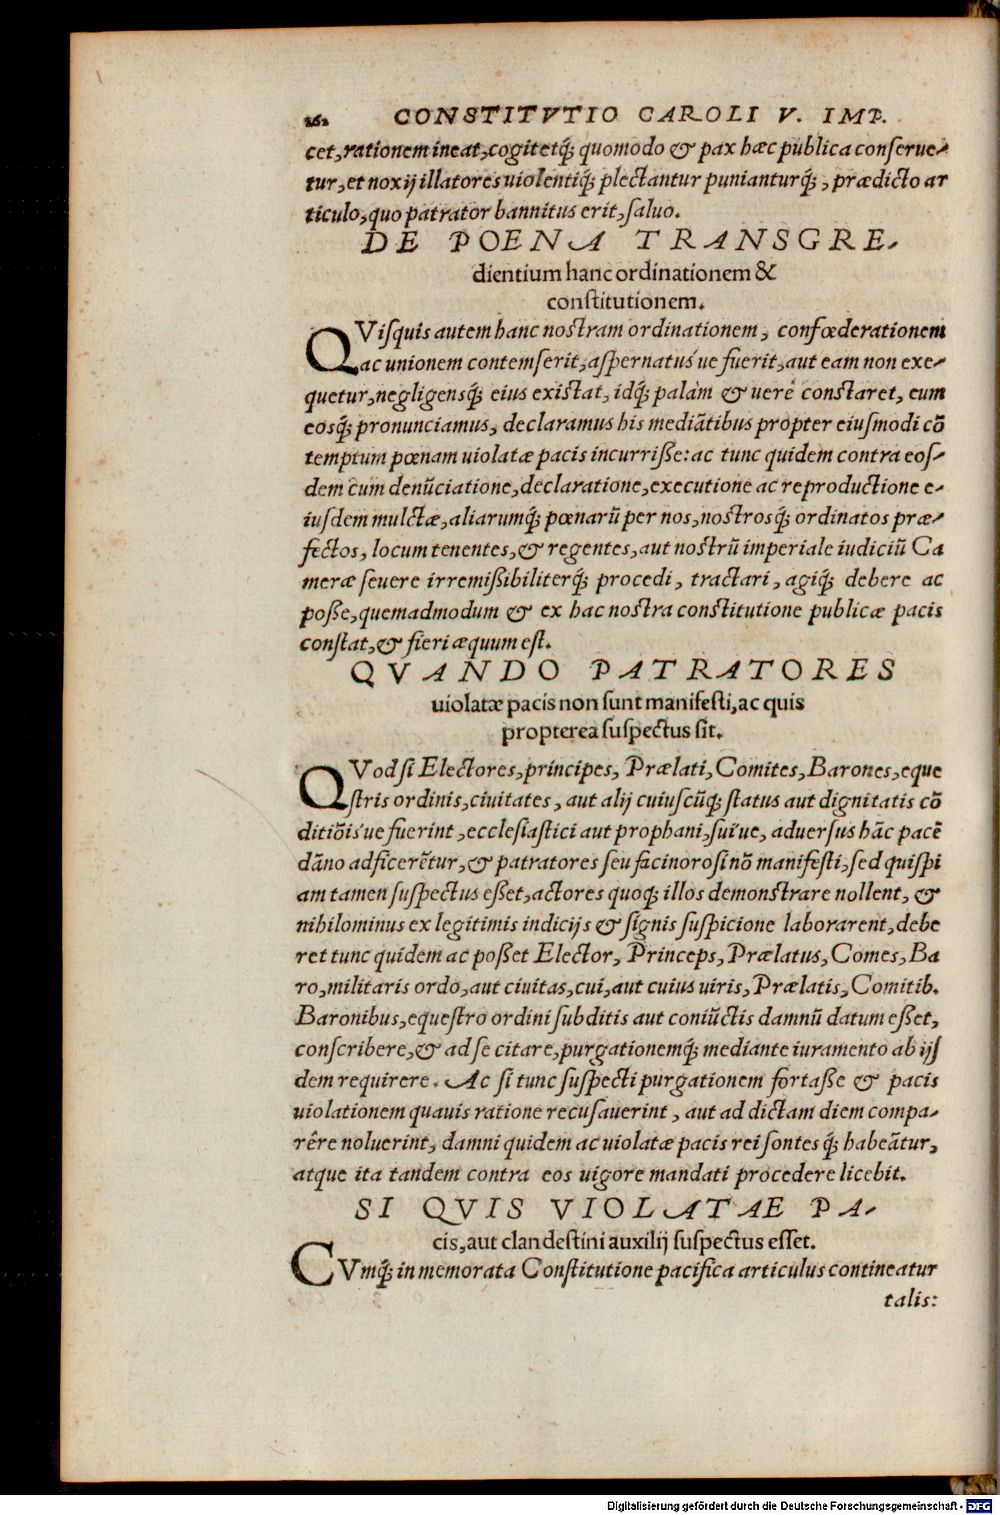 262 CONSTITVTIO CAROLI V. IMP.
cet, rationem ineat, cogitetq́; quomodo & pax hæc publica conserue-
tur, et noxij illatores uiolentiq́; plectantur punianturq́;, prædicto ar
ticulo, quo patrator bannitus erit, saluo.
DE POENA TRANSGRE-
dientium hanc ordinationem &
constitutionem.
QVisquis autem hanc nostram ordinationem, confœderationem
ac unionem contemserit, aspernatus'ue fuerit, aut eam non exe-
quetur, negligensq́; eius existat, idq́; palàm & uerè constaret, eum
eosq́; pronunciamus, declaramus his mediãtibus propter eiusmodi cõ
temptum pœnam uiolatæ pacis incurriße: ac tunc quidem contra eos-
dem cum denũciatione, declaratione, executione ac reproductione e-
iusdem mulctæ, aliarumq́; pœnarũ per nos, nostrosq́; ordinatos præ-
fectos, locum tenentes, & regentes, aut nostrũ imperiale iudiciũ Ca
meræ seuere irremißibiliterq́; procedi, tractari, agiq́; debere ac
poße, quemadmodum & ex hac nostra constitutione publicæ pacis
constat, & fieri æquum est.
QVANDO PATRATORES
uiolatæ pacis non sunt manifesti, ac quis
propterea suspectus sit.
QVod si Electores, principes, Prælati, Comites, Barones, eque
stris ordinis, ciuitates, aut alij cuiuscũq; status aut dignitatis cõ
ditiõis'ue fuerint, ecclesiastici aut prophani, sui'ue, aduersus hãc pacẽ
dãno adficerẽtur, & patratores seu facinorosi nõ manifesti, sed quispi
am tamen suspectus eßet, actores quoq; illos demonstrare nollent, &
nihilominus ex legitimis indicijs & signis suspicione laborarent, debe
ret tunc quidem ac poßet Elector, Princeps, Prælatus, Comes, Ba
ro, militaris ordo, aut ciuitas, cui, aut cuius uiris, Prælatis, Comitib.
Baronibus, equestro ordini subditis aut coniũctis damnũ datum eßet,
conscribere, & ad se citare, purgationemq́; mediante iuramento ab ijs
dem requirere. Ac si tunc suspecti purgationem fortaße & pacis
uiolationem quauis ratione recusauerint, aut ad dictam diem compa-
rêre noluerint, damni quidem ac uiolatæ pacis rei sontes q́; habeãtur,
atque ita tandem contra eos uigore mandati procedere licebit.
SI QVIS VIOLATAE PA-
cis, aut clandestini auxilij suspectus esset.
CVmq́; in memorata Constitutione pacifica articulus contineatur
talis:
Digitalisierung gefördert durch die Deutsche Forschungsgemeinschaft - DFG